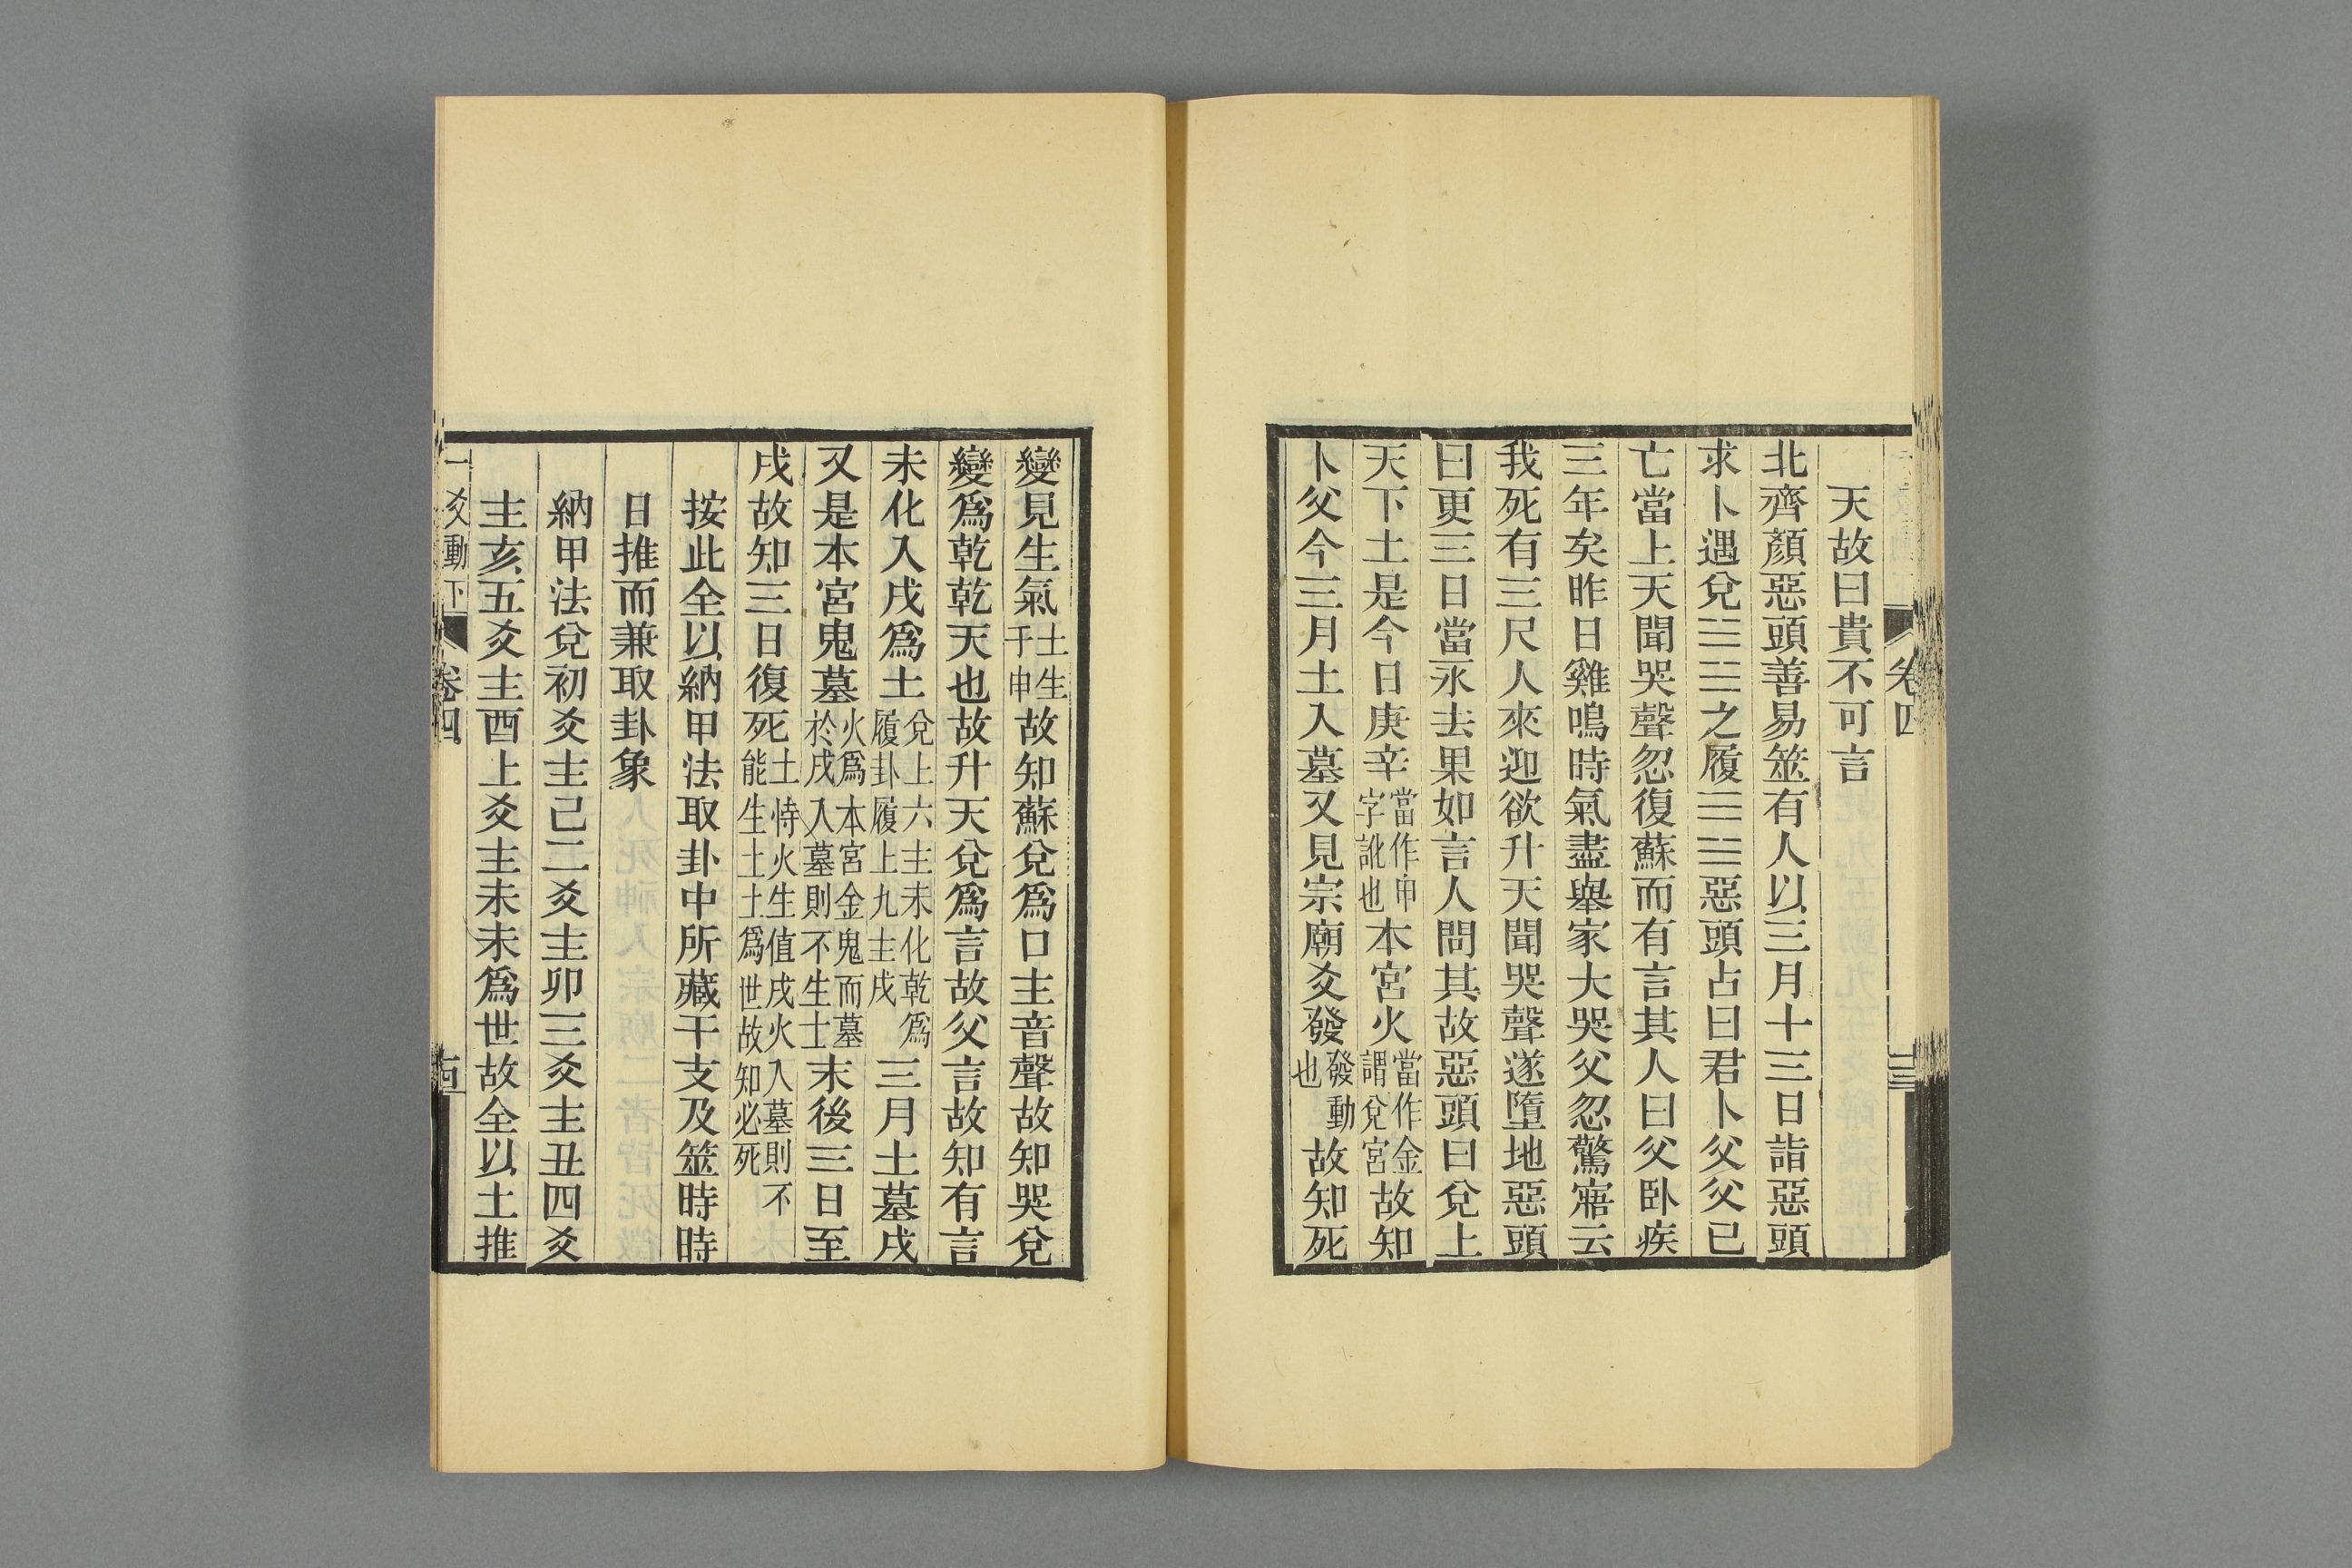 卷四
十三
天故曰貴不可言
北齊顏惡頭善易筮有人以三月十三日詣惡頭
求卜遇兌☱☱之履☰☱惡頭占曰君卜父父已
亡當上天聞哭聲忽復蘇而有言其人曰父卧疾
三年矣昨日雞鳴時氣盡舉家大哭父忽驚寤云
我死有三尺人來迎欲升天聞哭聲遂墮地惡頭
曰更三日當永去果如言人問其故惡頭曰兌上
天下土是今日庚辛當作申字訛也本宮火當作金謂兌宮故知
卜父今三月土入墓又見宗廟爻發發動也故知死
變見生氣土生于申故知蘇兌爲口主音聲故知哭兌
變爲乾乾天也故升天兌爲言故父言故知有言
未化入戌爲土兌上六主未化乾爲履卦履上九主戌三月土墓戌
又是本宮鬼墓火爲本宮金鬼而墓於戌入墓則不生士末後三日至
戌故知三日復死土恃火生值戌火入墓則不能生土土爲世故知必死
按此全以納甲法取卦中所藏干支及筮時時
日推而兼取卦象
納甲法兌初爻主己二爻主卯三爻主丑四爻
主亥五爻主酉上爻主未未爲世故全以土推
一爻動下
卷四